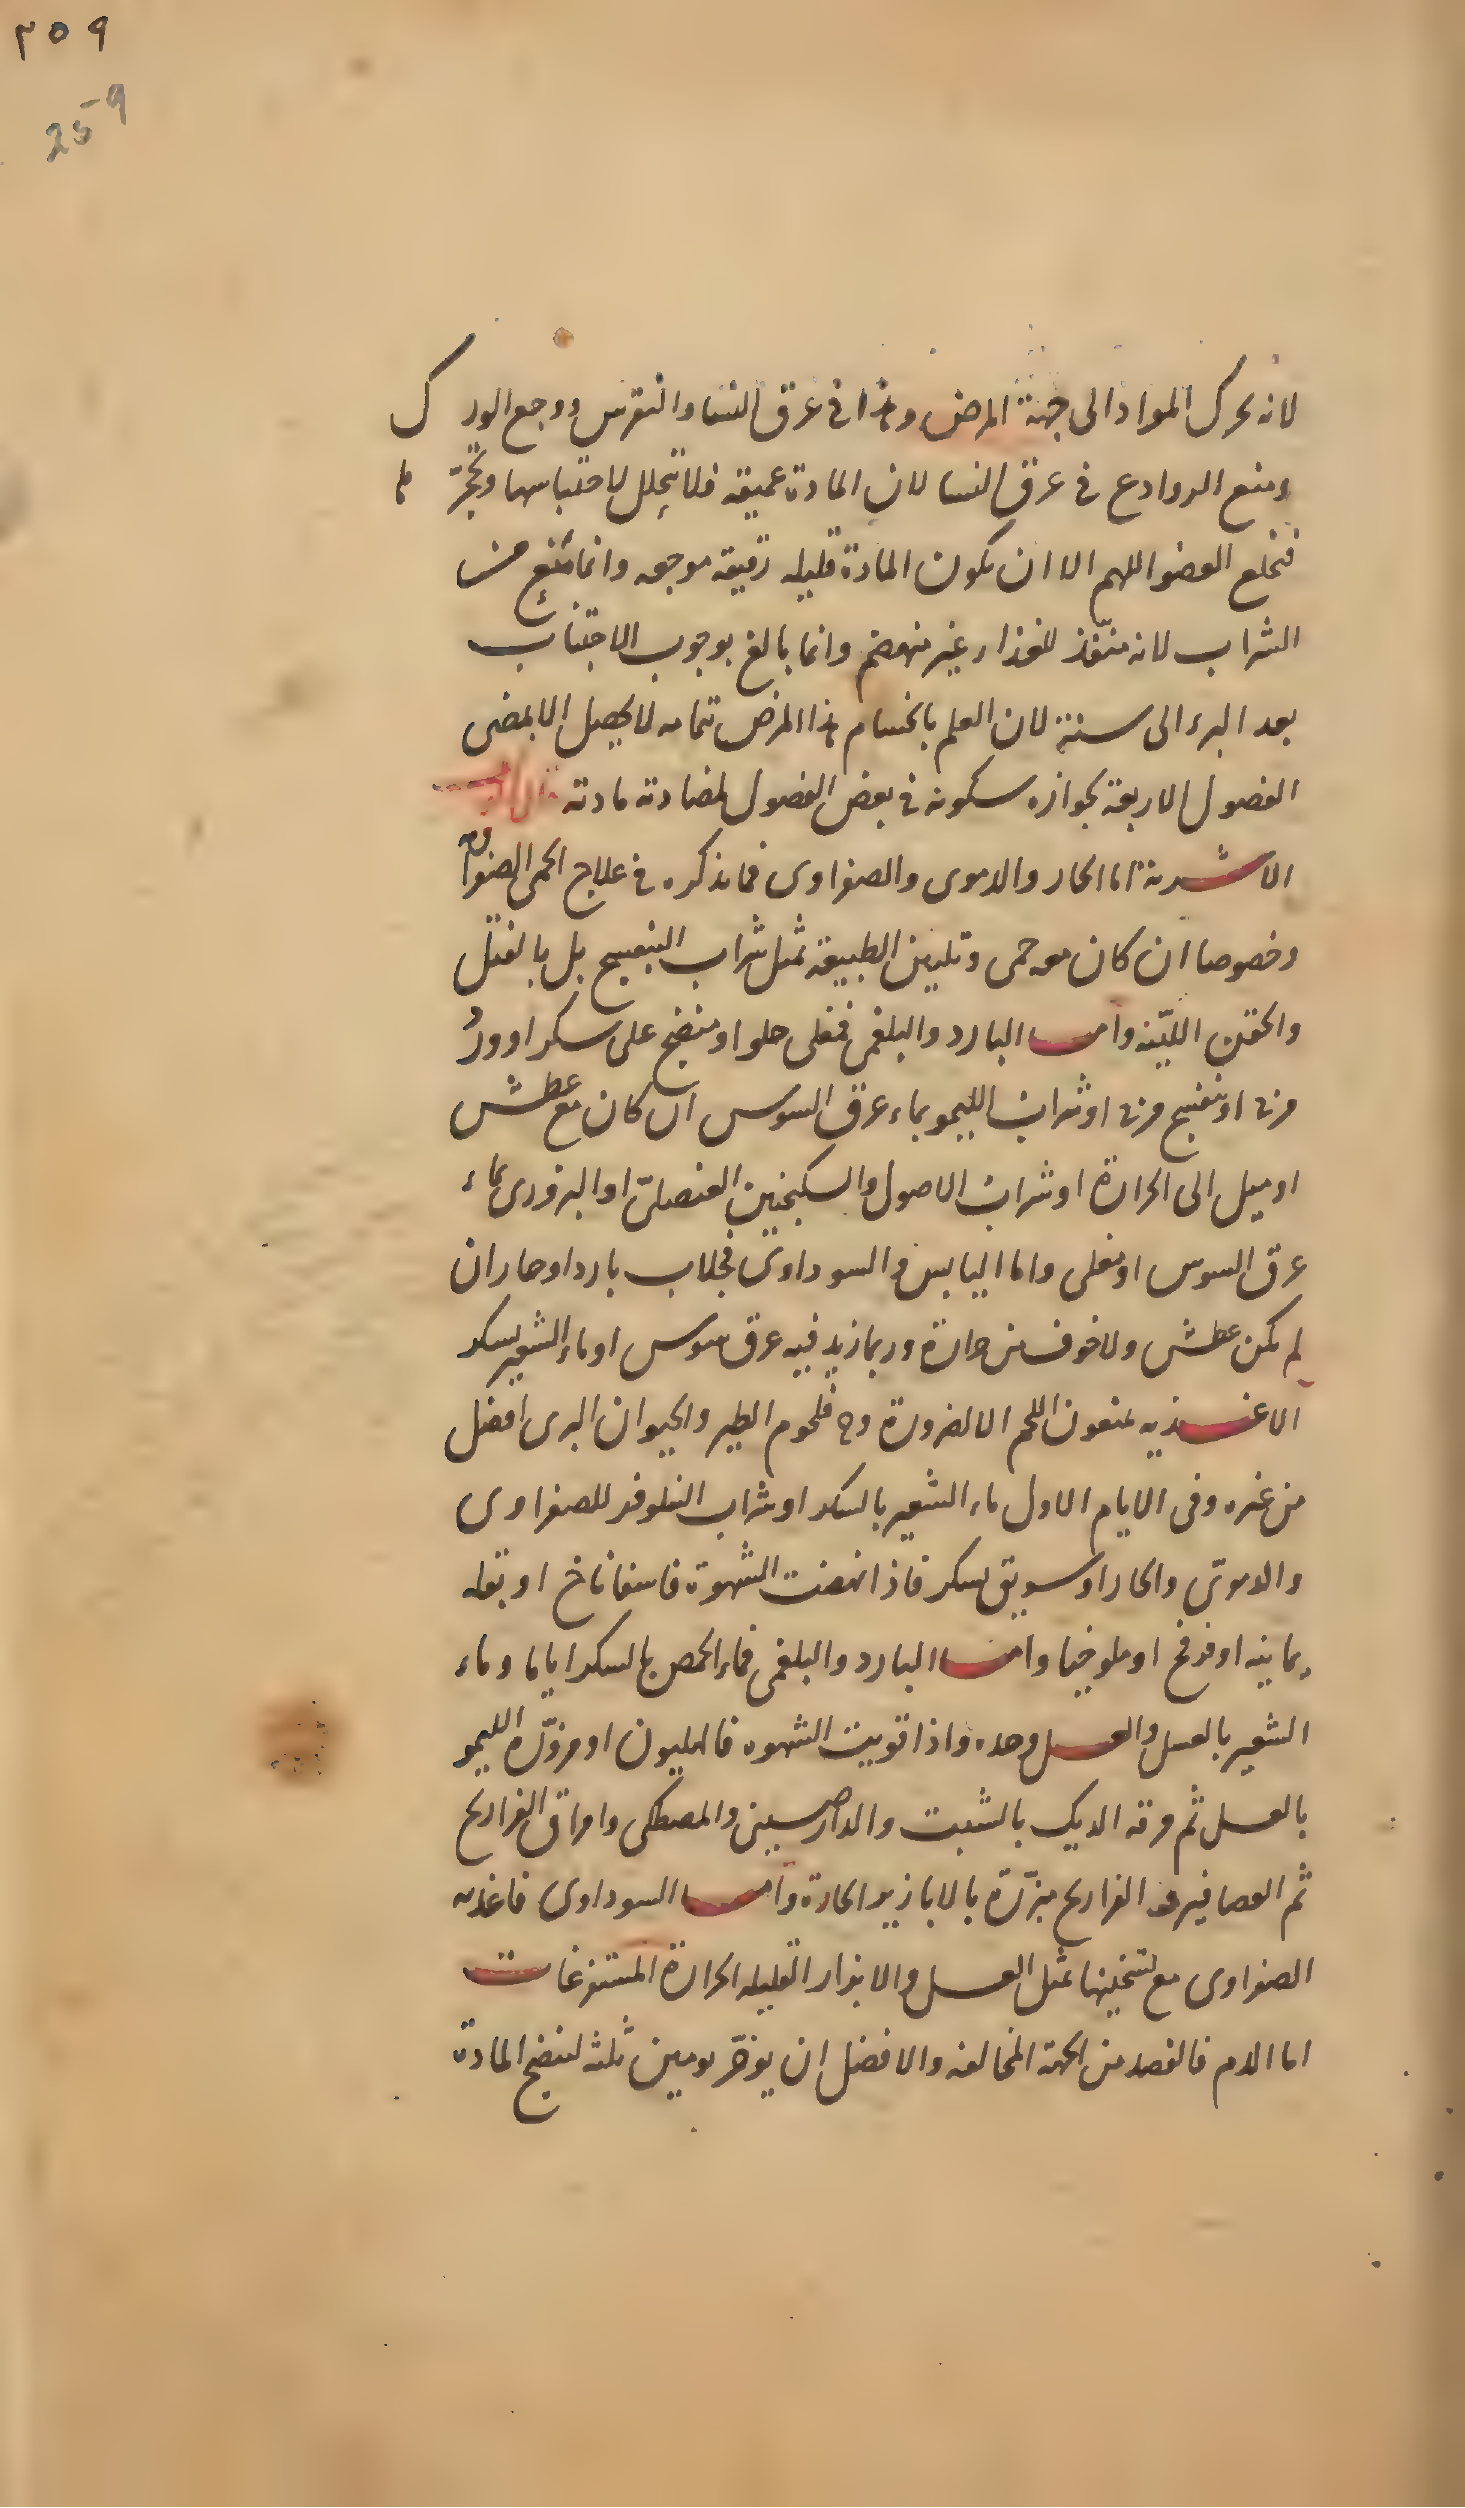 ٢٥٩
259
لانه يحرك المواد الى جهة المرض وهذا في عرق النسا والنقرس ووجع الورك
ومنع الروادع في عرق النسا لان المادة عميقه فلا تتحلل لاحتباسها وتحجّر
فتخلع العضو اللهم الا ان يكون المادة قليله رقيقه موجعه وانما مُنع من
الشراب لانه منفّذ للغذاء غير منهضم وانما بالغ بوجوب الاجتناب
بعد البرء الى سنة لان العلم بانحسام هذا المرض تمامه لا يحصل الا بمضى
الفصول الاربعة لجوازه سكونه في بعض الفصول لمضادته مادته
الاشربة اما الحار والدموى والصفراوى فما يذكره في علاج الحمى الصفراوية
وخصوصا ان كان معه حمى وتليين الطبيعة بمثل شراب البنفسج بل بالفتل
والحقن الليّنه واما البارد والبلغمى فمغلى حلو او منضج على سكر او ورد
مربى او بنفسج مربى او شراب الليمو بماء عرق السوس ان كان مع عطش
او ميل الى الحرارة او شراب الاصول والسكنجبين العنصلىّ او البزورى بماء
عرق السوس او مغلى واما اليابس والسوداوىّ فجلاب بارد او حار ان
لم يكن عطش ولا خوف من حرارة وربما زيد فيه عرق سوس او ماء الشعير بسكر
الاغذيه يمنعون اللحم الا لضرورة وح فلحوم الطير والحيوان البرى افضل
من غيره وفى الايام الاول ماء الشعير بالسكر او شراب النيلوفر للصفراوى
والدموىّ والحار او سويق بسكر فاذا نهضت الشهوة فاسفاناخ او بقله
يمانيه او فرفخ او ملوخيا واما البارد والبلغمى فماء الحمص بالسكر اياما وماء
الشعير بالعسل والعسل وحده واذا قويت الشهوه فالهليون او مزوّرة الليمو
بالعسل ثم مرقة الديك بالشبت والدارصينى والمصطكى وامراق الفراريج
ثم العصافير والفراريج مبزّرة بالابازير الحارة واما السوداوى فاغذيه
الصفراوى مع تسخينها بمثل العسل والابزار القليله الحرارة المستفرغات
اما الدم فالفصد من الجهة المخالفه والافضل ان يؤخّر يومين ثلثه لنضج المادة